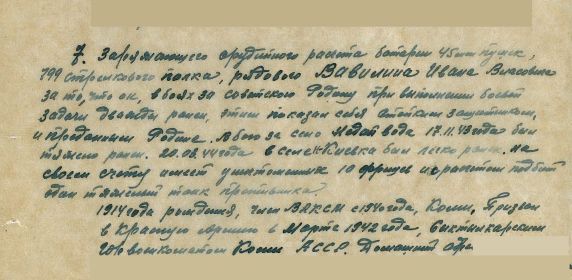 7. Заряжающего орудийного расчета батареи 45мм пушек,
799 стрелкового полка, рядового Вавилина Ивана Власовича
за то, что он, в боях за советскую Родину при выполнении боевой
задачи дважды ранен, этим показал себя стойким защитником,
и преданным Родине. в бою за село Медат вода 17.11.43 года был
тяжело ранен. 20.03.44 года в селе Киевка был легко ранен. на
своем счету имеет уничтожении 10 фрицев и расчетом подбит
был тяжелый танк противника.
1914 года рождения, член ВЛКСМ с 1940 года, Коми, Призван
в Красную Армию в Марте 1942 года,
военкоматом Коми АССР. Домашний адре